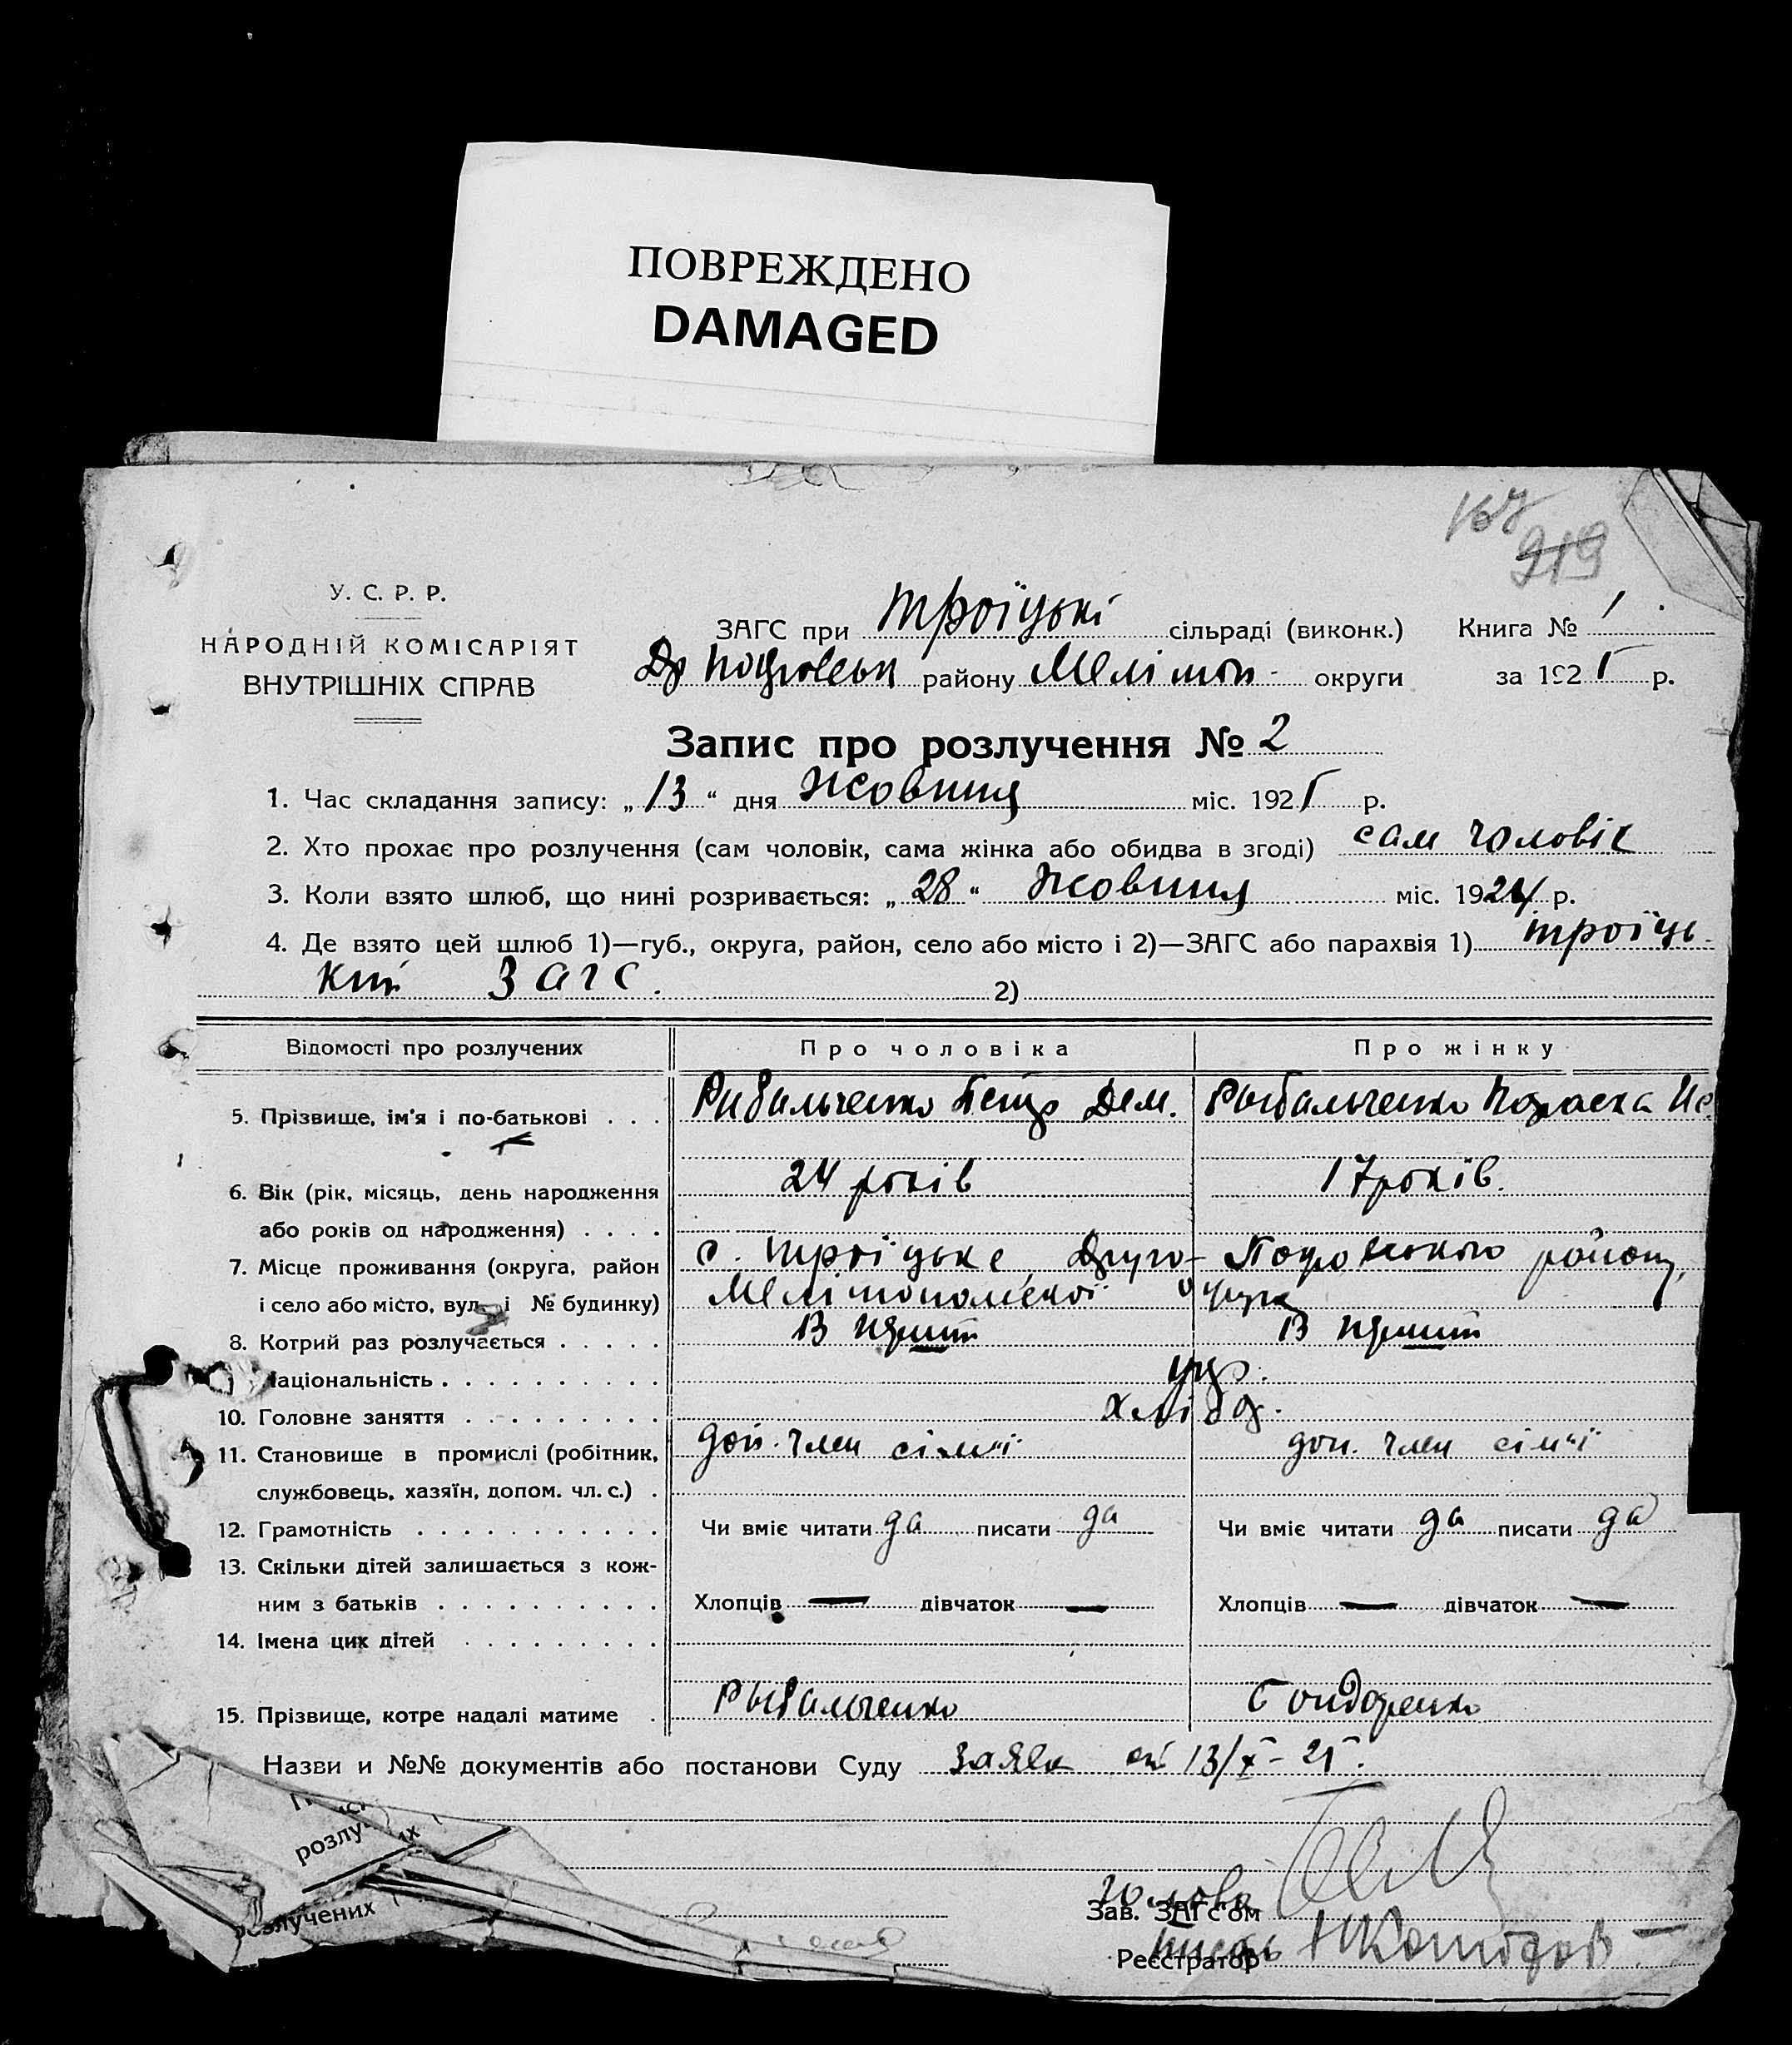 ПОВРЕЖДЕНО
DAMAGED
167
919
У. С. Р. Р.
НАРОДНІЙ КОМІСАРІЯТ
ВНУТРІШНІХ СПРАВ
ЗАГС при Троїцькі сільраді (виконк.) Книга № 1
Др Покровськ району Мелітоп. округи за 1925 р.
Запис про розлучення № 2
1. Час складання запису: „13“ дня Жовтня міс. 1925 р.
2. Хто прохає про розлучення (сам чоловік, сама жінка або обидва в згоді) сам чоловік
3. Коли взято шлюб, що нині розривається: „28“ Жовтня міс. 1924 р.
4. Де взято цей шлюб 1)—губ., округа, район, село або місто і 2)—ЗАГС або парахвія 1) Троїць-
кий Загс. 2)
Відомості про розлучених Про чоловіка Про жінку
5. Прізвище, ім'я і по-батькові . . . Рибальченко Петр Дем. Рыбальченко Параска Ис
6. Вік (рік, місяць, день народження 24 років 17 років.
або років од народження) . . . .
7. Місце проживання (округа, район с. Троїцьке, Друго- Покровського району,
і село або місто, вул. і № будинку) Мелітопольської округи
8. Котрий раз розлучається . . . . . В перший В перший
Національність . . . . . . . . . . укр.
10. Головне заняття . . . . . . . . . хлібор.
11. Становище в промислі (робітник, доп. член сім'ї доп. член сім'ї
службовець, хазяїн, допом. чл. с.) .
12. Грамотність . . . . . . . . . . . Чи вміє читати да писати да Чи вміє читати да писати да
13. Скільки дітей залишається з кож-
ним з батьків . . . . . . . . . . Хлопців — дівчаток — Хлопців — дівчаток —
14. Імена цих дітей . . . . . . . . .
15. Прізвище, котре надалі матиме . Рыбальченко Бондаренко
Назви и №№ документів або постанови Суду заява від 13/X-25.
розлу
их
розлучених
Голова
Зав. ЗАГС'ом
Реєстратор